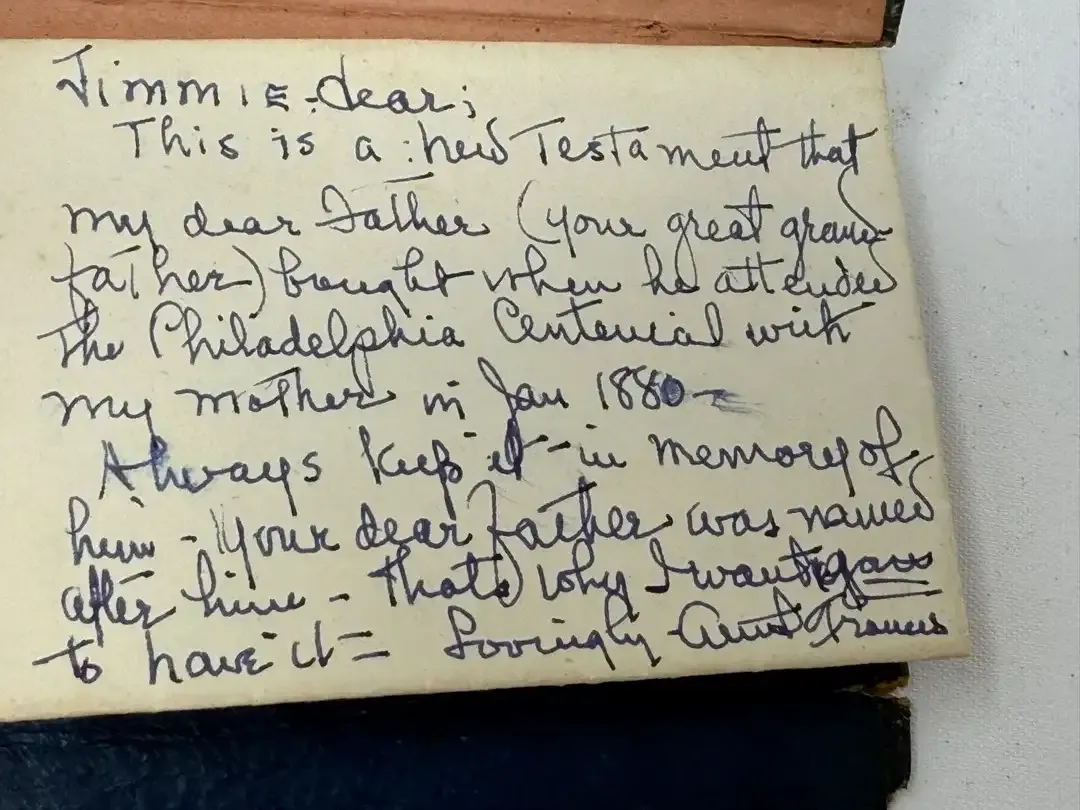 Jimmie dear;
This is a new Testament that
my dear Father (your great grand-
father) bought when he attended
the Philadelphia Centenial with
my mother in Jan 1880-
Always keep it in memory of
him - Your dear father was named
after him - that's why I want you
to have it = Lovingly Aunt Frances